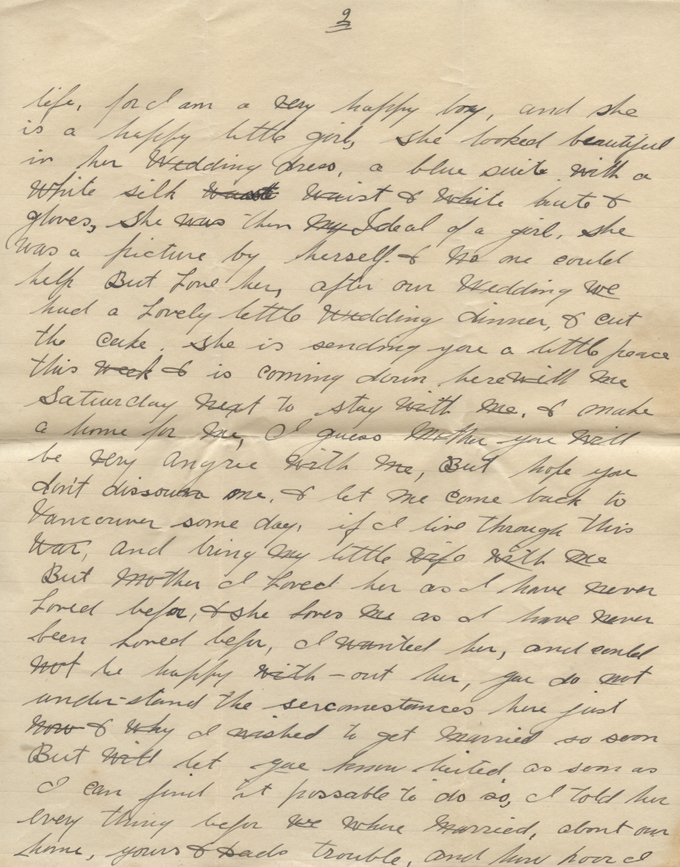 2
life, for I am a very happy boy, and she
is a happy little girl, she looked beautiful
in her Wedding dress, a blue suite with a
White silk Waist & White hute &
gloves, She was then my Ideal of a girl, she
was a picture by herself. & No one could
help But Love her, after our Wedding We
had a Lovely little Wedding dinner, & cut
the cake. She is sending you a little peace
this Week & is coming down here With Me
Saturday Next to stay With Me, & make
a home for Me, I guess Mother you Will
be very angrie With Me, But hope you
don't dissown me, & let Me come back to
Vancouver some day, if I live through this
War, and bring My little Wife With Me
But Mother I Loved her as I have never
Loved befor, & she Loves Me as I have never
been Loved befor, I Wanted her, and could
Not be happy With-out her, you do Not
under-stand the sercomestances here just
Now & Why I wished to get Married so soon
But Will let you know as soon as
I can find it possable to do so, I told her
every thing befor We Where Married, about our
home, yours & Dads trouble, and how poor I